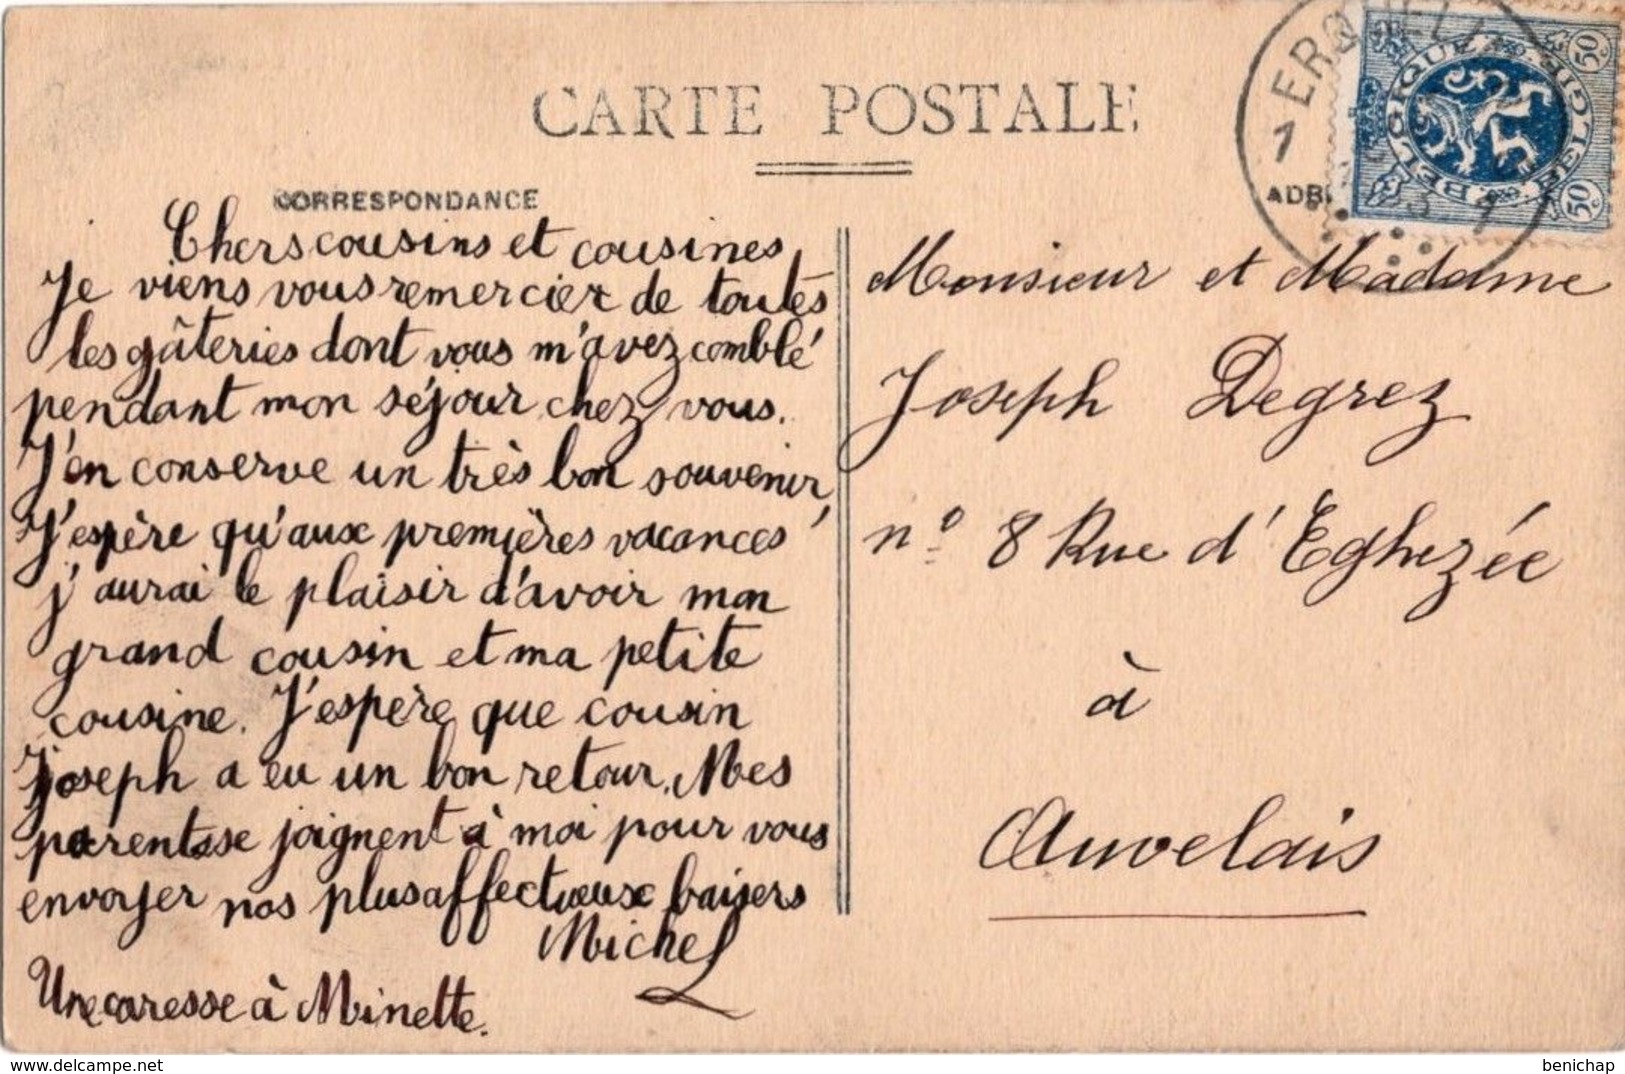 CARTE POSTALE
CORRESPONDANCE
Chers cousins et cousines,
Je viens vous remercier de toutes
les gâteries dont vous m'avez comblé
pendant mon séjour chez vous.
J'en conserve un très bon souvenir,
J'espère qu'aux premières vacances
j'aurai le plaisir d'avoir mon
grand cousin et ma petite
cousine. J'espère que cousin
joseph a eu un bon retour. Mes
parents se joignent à moi pour vous
envoyer nos plus affectueux baisers
Michel
Une caresse à Minette.
BELGIQUE BELGIË
50c
50c
1
ADB
Monsieur et Madame
Joseph Degrez
n° 8 Rue d'Eghezée
à
Auvelais
https://www.delcampe.net
benichap